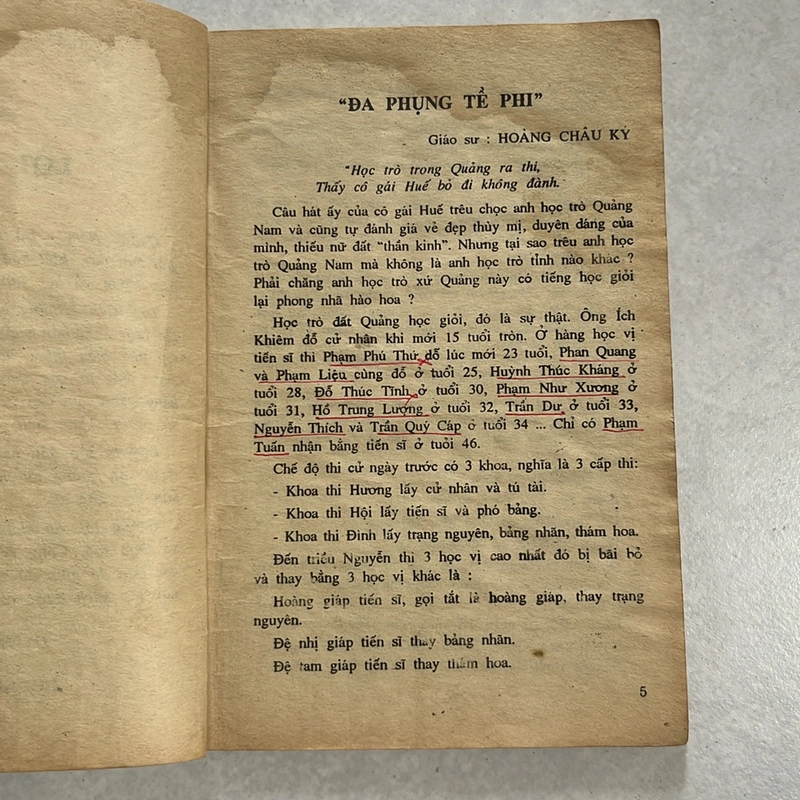 "ĐA PHỤNG TỀ PHI"
Giáo sư : HOÀNG CHÂU KÝ
"Học trò trong Quảng ra thi,
Thấy cô gái Huế bỏ đi không đành.
Câu hát ấy của cô gái Huế trêu chọc anh học trò Quảng
Nam và cũng tự đánh giá vẻ đẹp thùy mị, duyên dáng của
mình, thiếu nữ đất "thần kinh". Nhưng tại sao trêu anh học
trò Quảng Nam mà không là anh học trò tỉnh nào khác ?
Phải chăng anh học trò xứ Quảng này có tiếng học giỏi
lại phong nhã hào hoa ?
Học trò đất Quảng học giỏi, đó là sự thật. Ông Ích
Khiêm đỗ cử nhận khi mới 15 tuổi tròn. Ở hàng học vị
tiến sĩ thì Phạm Phú Thứ đỗ lúc mới 23 tuổi, Phan Quang
và Phạm Liệu cùng đỗ ở tuổi 25, Huỳnh Thúc Kháng ở
tuổi 28, Đỗ Thúc Tĩnh ở tuổi 30, Phạm Như Xương ở
tuổi 31, Hồ Trung Lượng ở tuổi 32, Trần Dư ở tuổi 33,
Nguyễn Thích và Trần Quý Cáp ở tuổi 34 ... Chỉ có Phạm
Tuấn nhận bằng tiến sĩ ở tuổi 46.
Chế độ thi cử ngày trước có 3 khoa, nghĩa là 3 cấp thi:
- Khoa thi Hương lấy cử nhân và tú tài.
- Khoa thi Hội lấy tiến sĩ và phó bảng.
- Khoa thi Đình lấy trạng nguyên, bảng nhãn, thám hoa.
Đến triều Nguyễn thì 3 học vị cao nhất đó bị bãi bỏ
và thay bằng 3 học vị khác là :
Hoàng giáp tiến sĩ, gọi tắt là hoàng giáp, thay trạng
nguyên.
Đệ nhị giáp tiến sĩ thay bảng nhãn.
Đệ tam giáp tiến sĩ thay thám hoa.
5